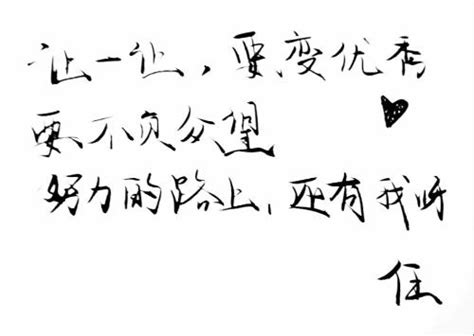 让一让，要变优秀
要不负众望
努力的路上，还有我呀
任